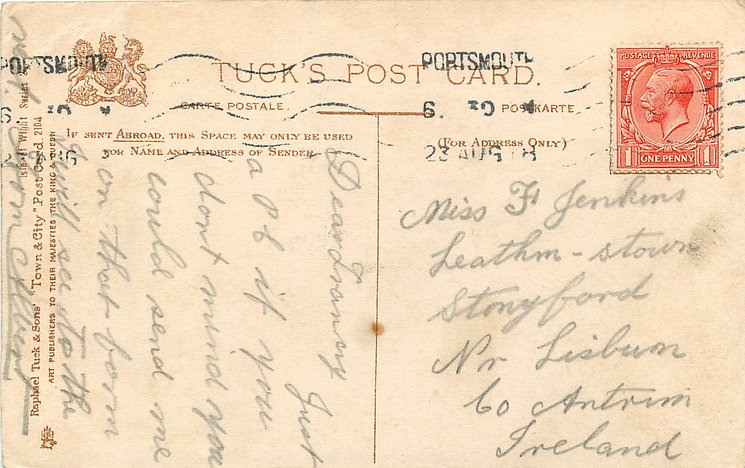 TUCK'S POST CARD.
CARTE POSTALE.
POSTKARTE
IF SENT ABROAD, THIS SPACE MAY ONLY BE USED
FOR NAME AND ADDRESS OF SENDER
(FOR ADDRESS ONLY)
PORTSMOUTH
PORTSMOUTH
6. 30
23 AUG 18
POSTAGE REVENUE
1 ONE PENNY 1
Isle of Wight Series
Raphael Tuck & Sons' "Town & City" Post Card 2104
ART PUBLISHERS TO THEIR MAJESTIES THE KING & QUEEN
Dear Franny
Just
a P C if you
dont mind you
could send me
on that form
I will see to the
Miss F Jenkins
Leathm-stown
Stonyford
Nr Lisburn
Co Antrim
Ireland